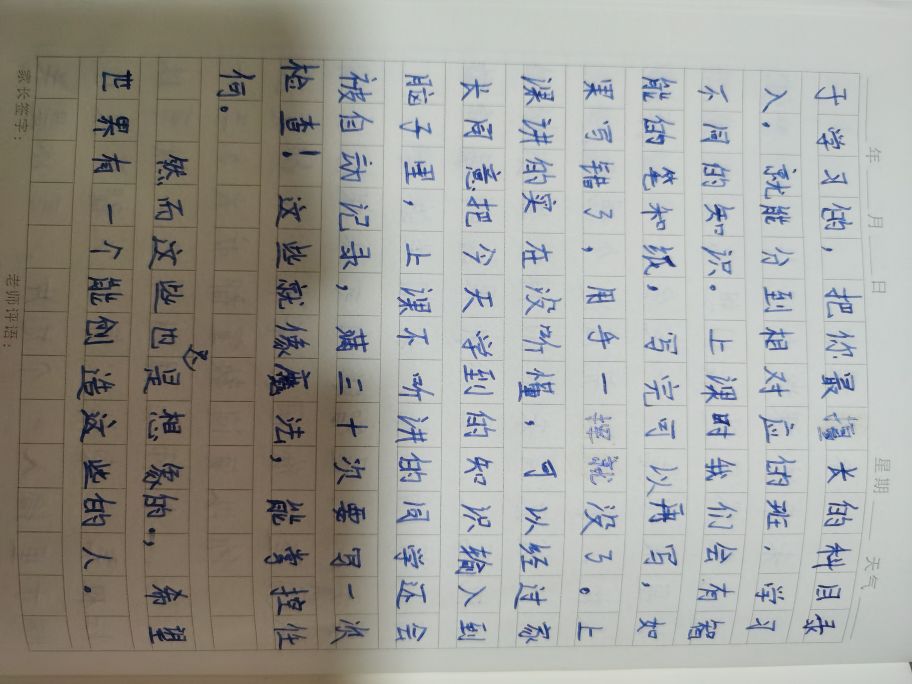 年 月 日 星期 天气
于学习的，把你最懂大的科目录
入，就能分到相对应的班，学习
不同的知识。上课时我们会有智
能的笔和纸，写完可以再写，如
果写错了，用手一擦就没了。上
课讲的实在没听懂，可以经过家
长同意把今天学到的知识输入到
脑子里，上课不听讲的同学还会
被自动记录，满三十次要写一次
检查！这些就像魔法，能掌控住
何。
然而这些也还是想像的，希望
世界有一个能创造这些的人。
家长签字： 老师评语：